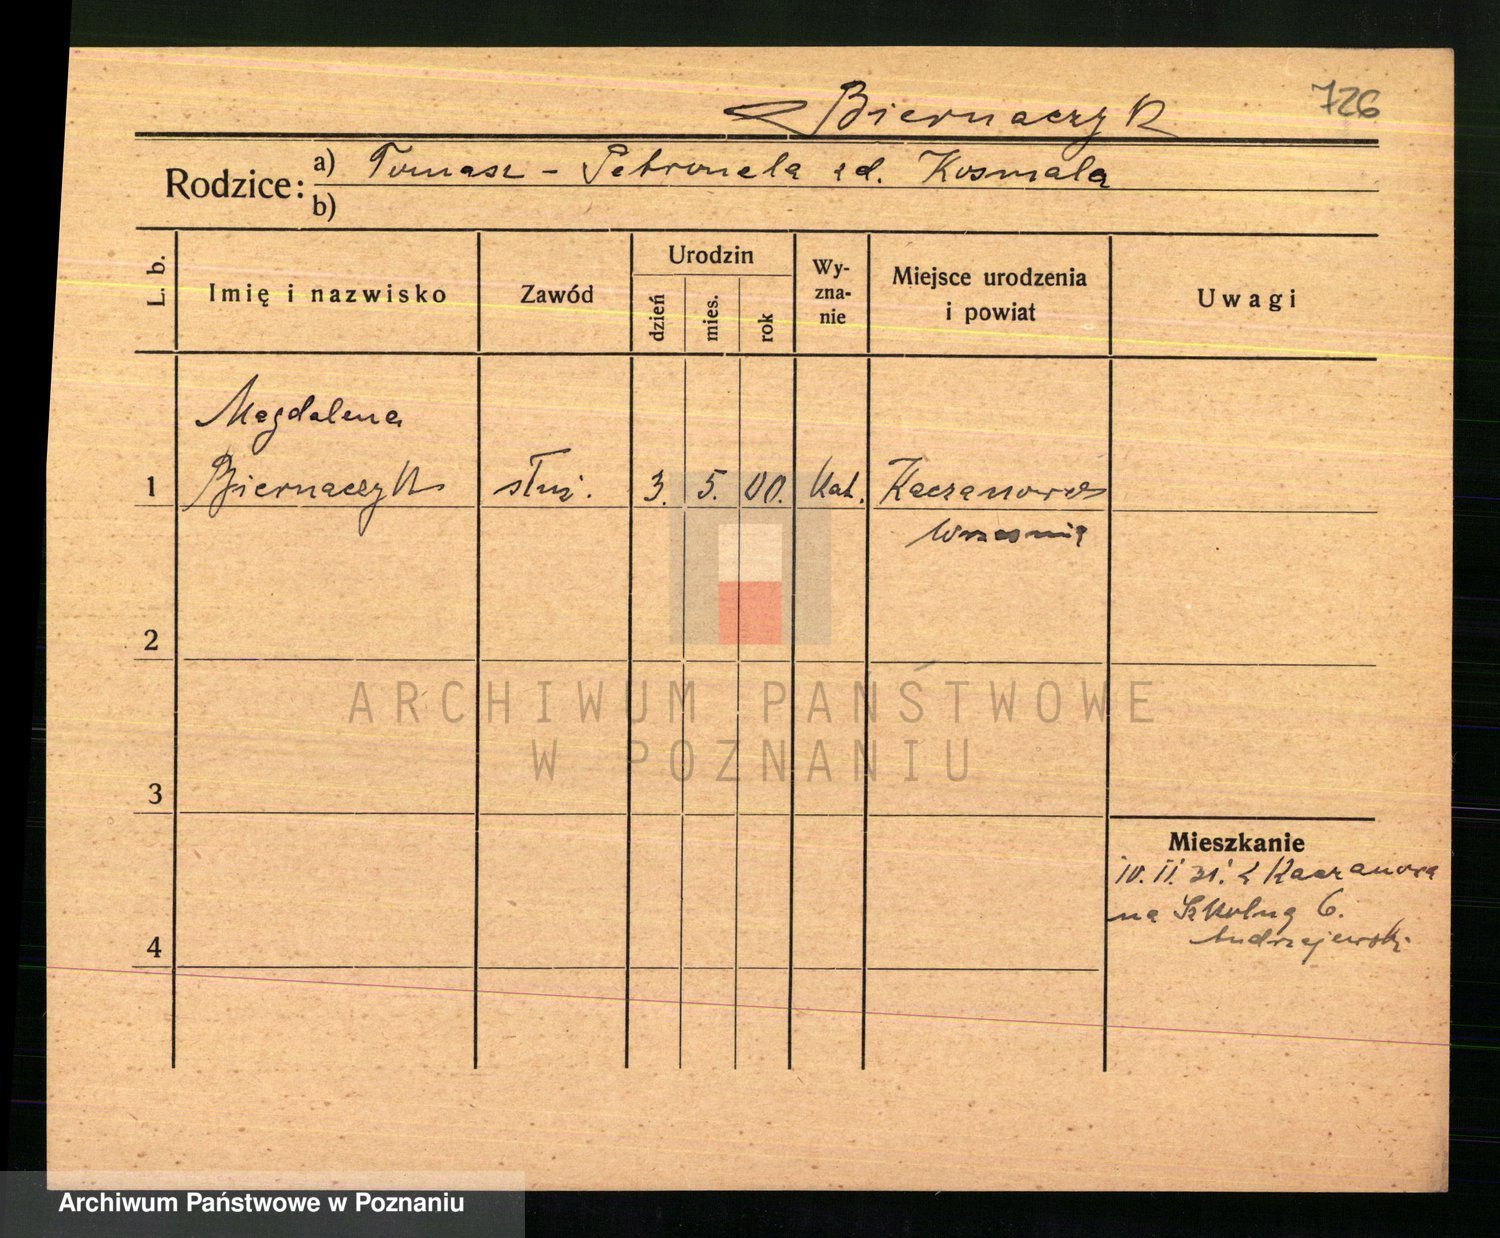 Biernaczyk
726
Rodzice: a) Tomasz - Petronela zd. Kosmala
b)
L. b.
Imię i nazwisko
Zawód
Urodzin
dzień
mies.
rok
Wy-
zna-
nie
Miejsce urodzenia
i powiat
Uwagi
Magdalena
1 Biernaczyk służ. 3. 5. 00. kat. Kaczanowo
Września
2
ARCHIWUM PAŃSTWOWE
W POZNANIU
3
Mieszkanie
10. II. 31. z Kaczanowa
na Szkolną 6.
Andrzejewski
4
Archiwum Państwowe w Poznaniu